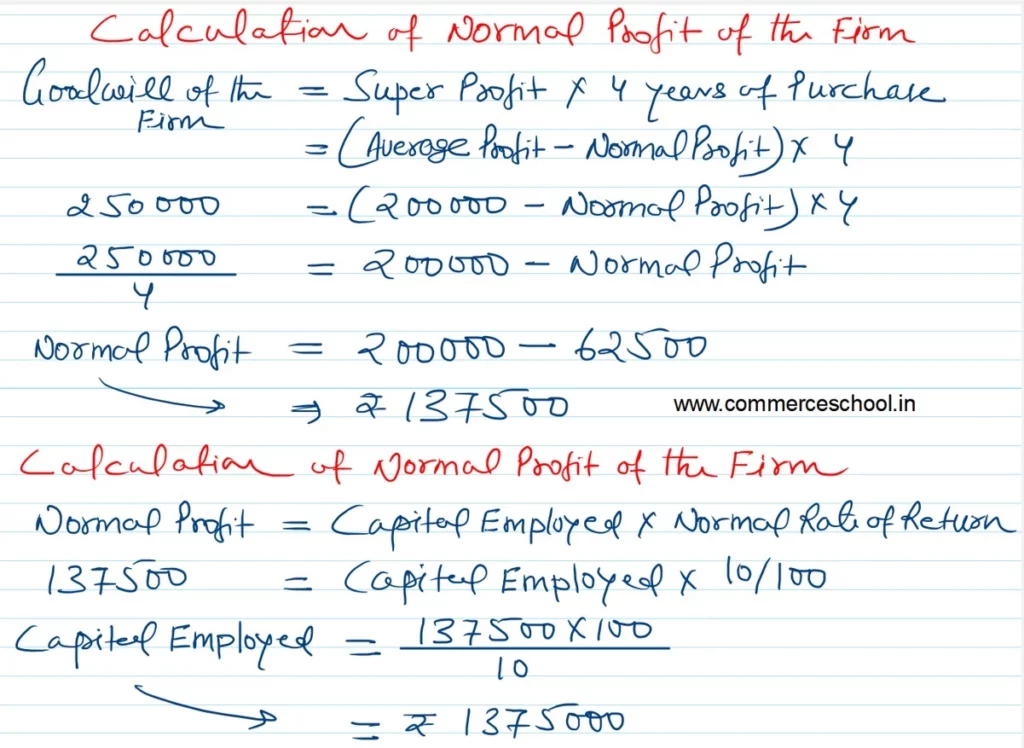 Calculation of Normal Profit of the Firm
Goodwill of the Firm = Super Profit × 4 years of Purchase
= (Average Profit - Normal Profit) × 4
250000 = (200000 - Normal Profit) × 4
250000 / 4 = 200000 - Normal Profit
Normal Profit = 200000 - 62500
⇒ ₹ 137500 www.commerceschool.in
Calculation of Normal Profit of the Firm
Normal Profit = Capital Employed × Normal Rate of Return
137500 = Capital Employed × 10/100
Capital Employed = 137500 × 100 / 10
= ₹ 1375000